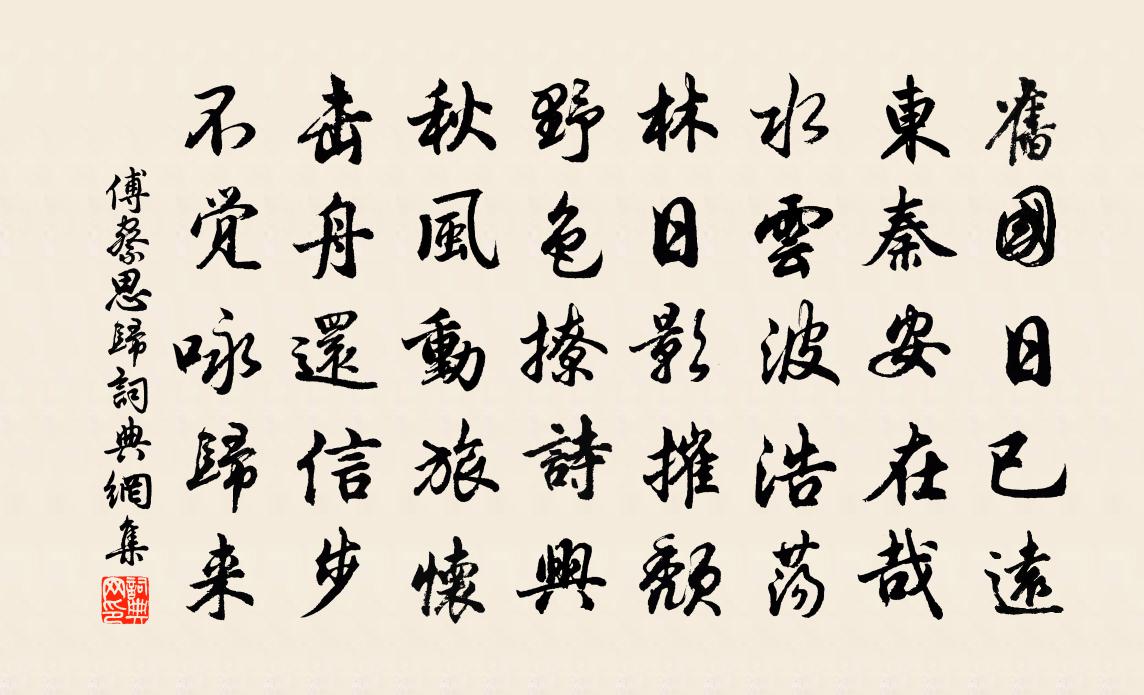 舊國日已遠
東秦安在哉
水雲波浩蕩
林日影摧頹
野色撩詩興
秋風動旅懷
舟還信步
不覚咏歸来
傅察思歸詞典網集
詞典
网印